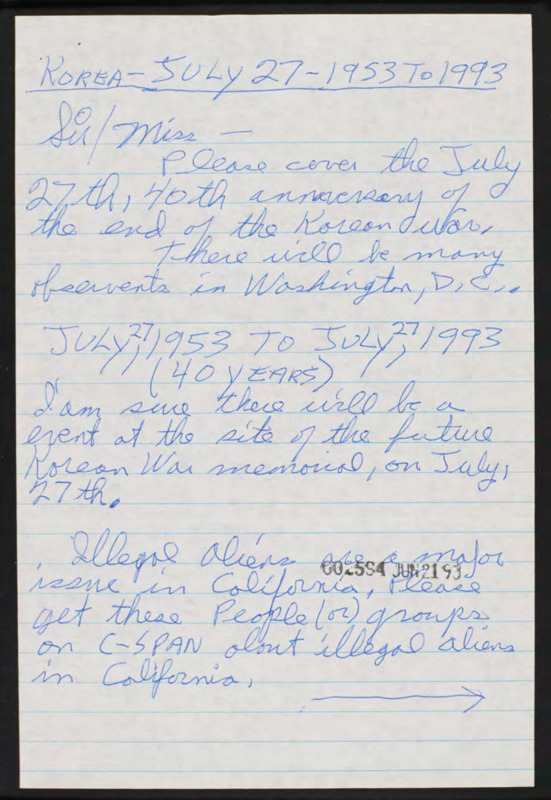 KOREA - JULY 27 - 1953 TO 1993
Sir/Miss —
Please cover the July
27th, 40th anniversary of
the end of the Korean War.
There will be many
observents in Washington, D.C..
JULY, 27, 1953 TO JULY, 27, 1993
(40 YEARS)
I am sure there will be a
event at the site of the future
Korean War memorial, on July,
27th.
Illegal Aliens are a major
002584 JUN 21 93
issue in California, Please
get these People (or) groups
on C-SPAN about illegal aliens
in California.